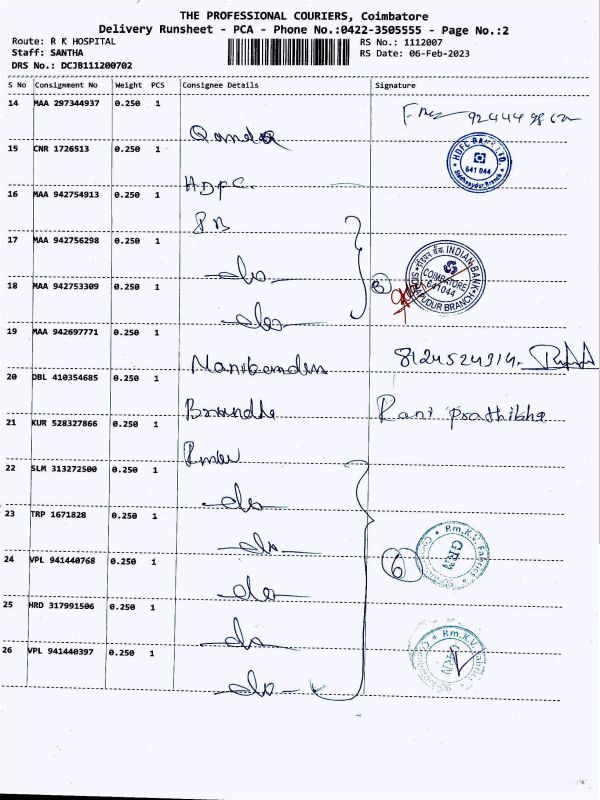 THE PROFESSIONAL COURIERS, Coimbatore
Delivery Runsheet - PCA - Phone No.:0422-3505555 - Page No.:2
Route: R K HOSPITAL RS No.: 1112007
Staff: SANTHA RS Date: 06-Feb-2023
DRS No.: DCJB111200702
S No Consignment No Weight PCS Consignee Details Signature
14 MAA 297344937 0.250 1
15 CNR 1726513 0.250 1 HDFC.
HDFC BANK LTD.
641 044
Siddhapudur Branch
16 MAA 942754913 0.250 1
17 MAA 942756298 0.250 1 do
18 MAA 942753309 0.250 1 do
3
INDIAN BANK
COIMBATORE
641044
PUDUR BRANCH
19 MAA 942697771 0.250 1 8124524914.
20 DBL 410354685 0.250 1 Rani Prathibha
21 KUR 528327866 0.250 1
22 SLM 313272500 0.250 1 do
23 TRP 1671828 0.250 1 do
24 VPL 941440768 0.250 1 do
6
Rm.K.V. Fabrics
GRN
25 HRD 317991506 0.250 1 do
26 VPL 941440397 0.250 1 do
Rm.K.V. Fabrics
GRN